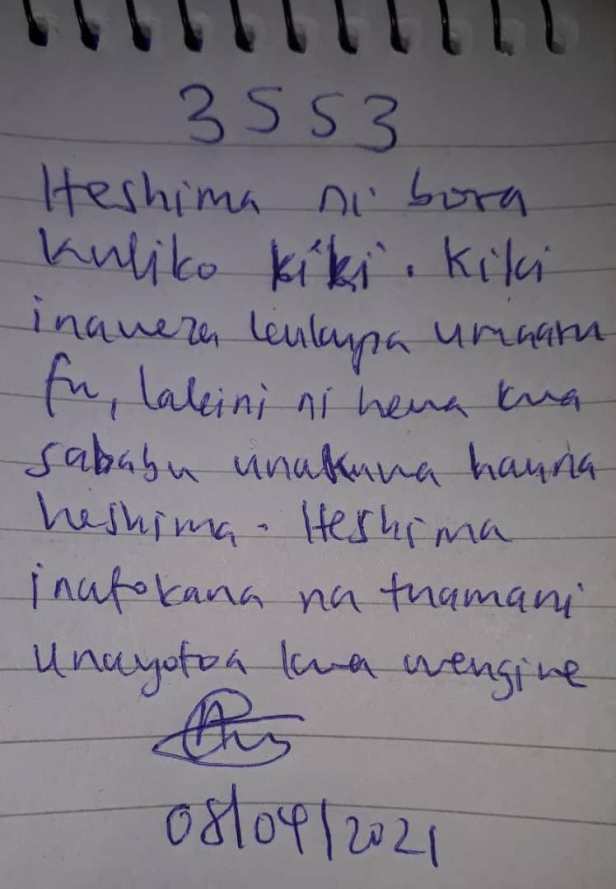 3553
Heshima ni bora
kuliko kiki. Kiki
inaweza kukupa umaaru
fu, lakini ni hewa kwa
sababu unakuwa hauna
heshima. Heshima
inatokana na thamani
unayotoa kwa wengine
08/04/2021